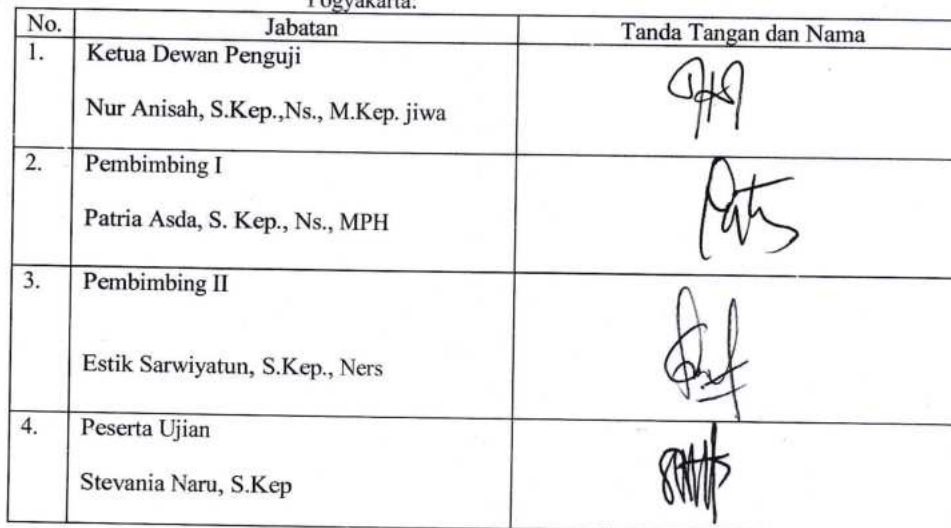 Yogyakarta.
No. Jabatan Tanda Tangan dan Nama
1. Ketua Dewan Penguji
Nur Anisah, S.Kep.,Ns., M.Kep. jiwa
2. Pembimbing I
Patria Asda, S. Kep., Ns., MPH
3. Pembimbing II
Estik Sarwiyatun, S.Kep., Ners
4. Peserta Ujian
Stevania Naru, S.Kep